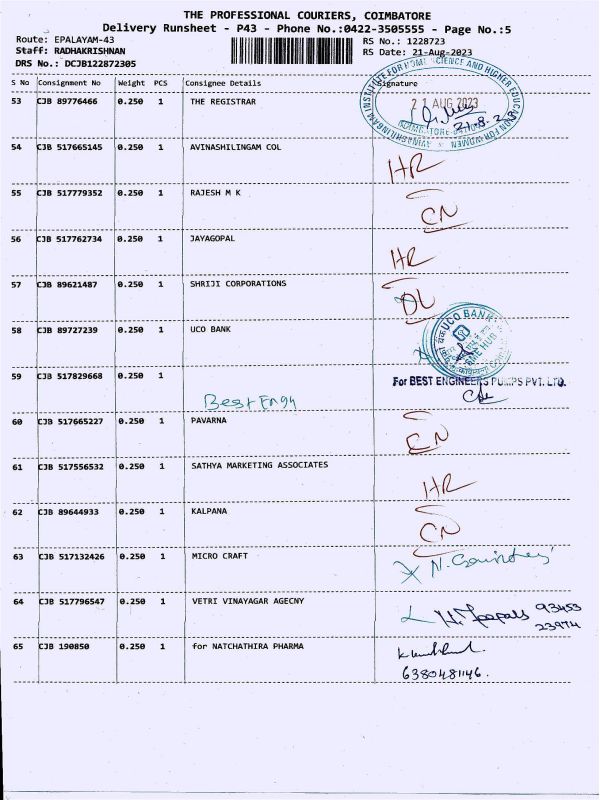 THE PROFESSIONAL COURIERS, COIMBATORE
Delivery Runsheet - P43 - Phone No.:0422-3505555 - Page No.:5
Route: EPALAYAM-43 RS No.: 1228723
Staff: RADHAKRISHNAN RS Date: 21-Aug-2023
DRS No.: DCJB122872305
S No Consignment No Weight PCS Consignee Details Signature
53 CJB 89776466 0.250 1 THE REGISTRAR
AVINASHILINGAM INSTITUTE FOR HOME SCIENCE AND HIGHER EDUCATION FOR WOMEN
21 AUG 2023
21.8.23
54 CJB 517665145 0.250 1 AVINASHILINGAM COL HR
55 CJB 517779352 0.250 1 RAJESH M K CN
56 CJB 517762734 0.250 1 JAYAGOPAL HR
57 CJB 89621487 0.250 1 SHRIJI CORPORATIONS DL
58 CJB 89727239 0.250 1 UCO BANK UCO BANK
59 CJB 517829668 0.250 1 For BEST ENGINEERS PUMPS PVT. LTD.
Best Engg
60 CJB 517665227 0.250 1 PAVARNA CN
61 CJB 517556532 0.250 1 SATHYA MARKETING ASSOCIATES HR
62 CJB 89644933 0.250 1 KALPANA CN
63 CJB 517132426 0.250 1 MICRO CRAFT
64 CJB 517796547 0.250 1 VETRI VINAYAGAR AGECNY 93453
23974
65 CJB 190850 0.250 1 for NATCHATHIRA PHARMA
6380481146.